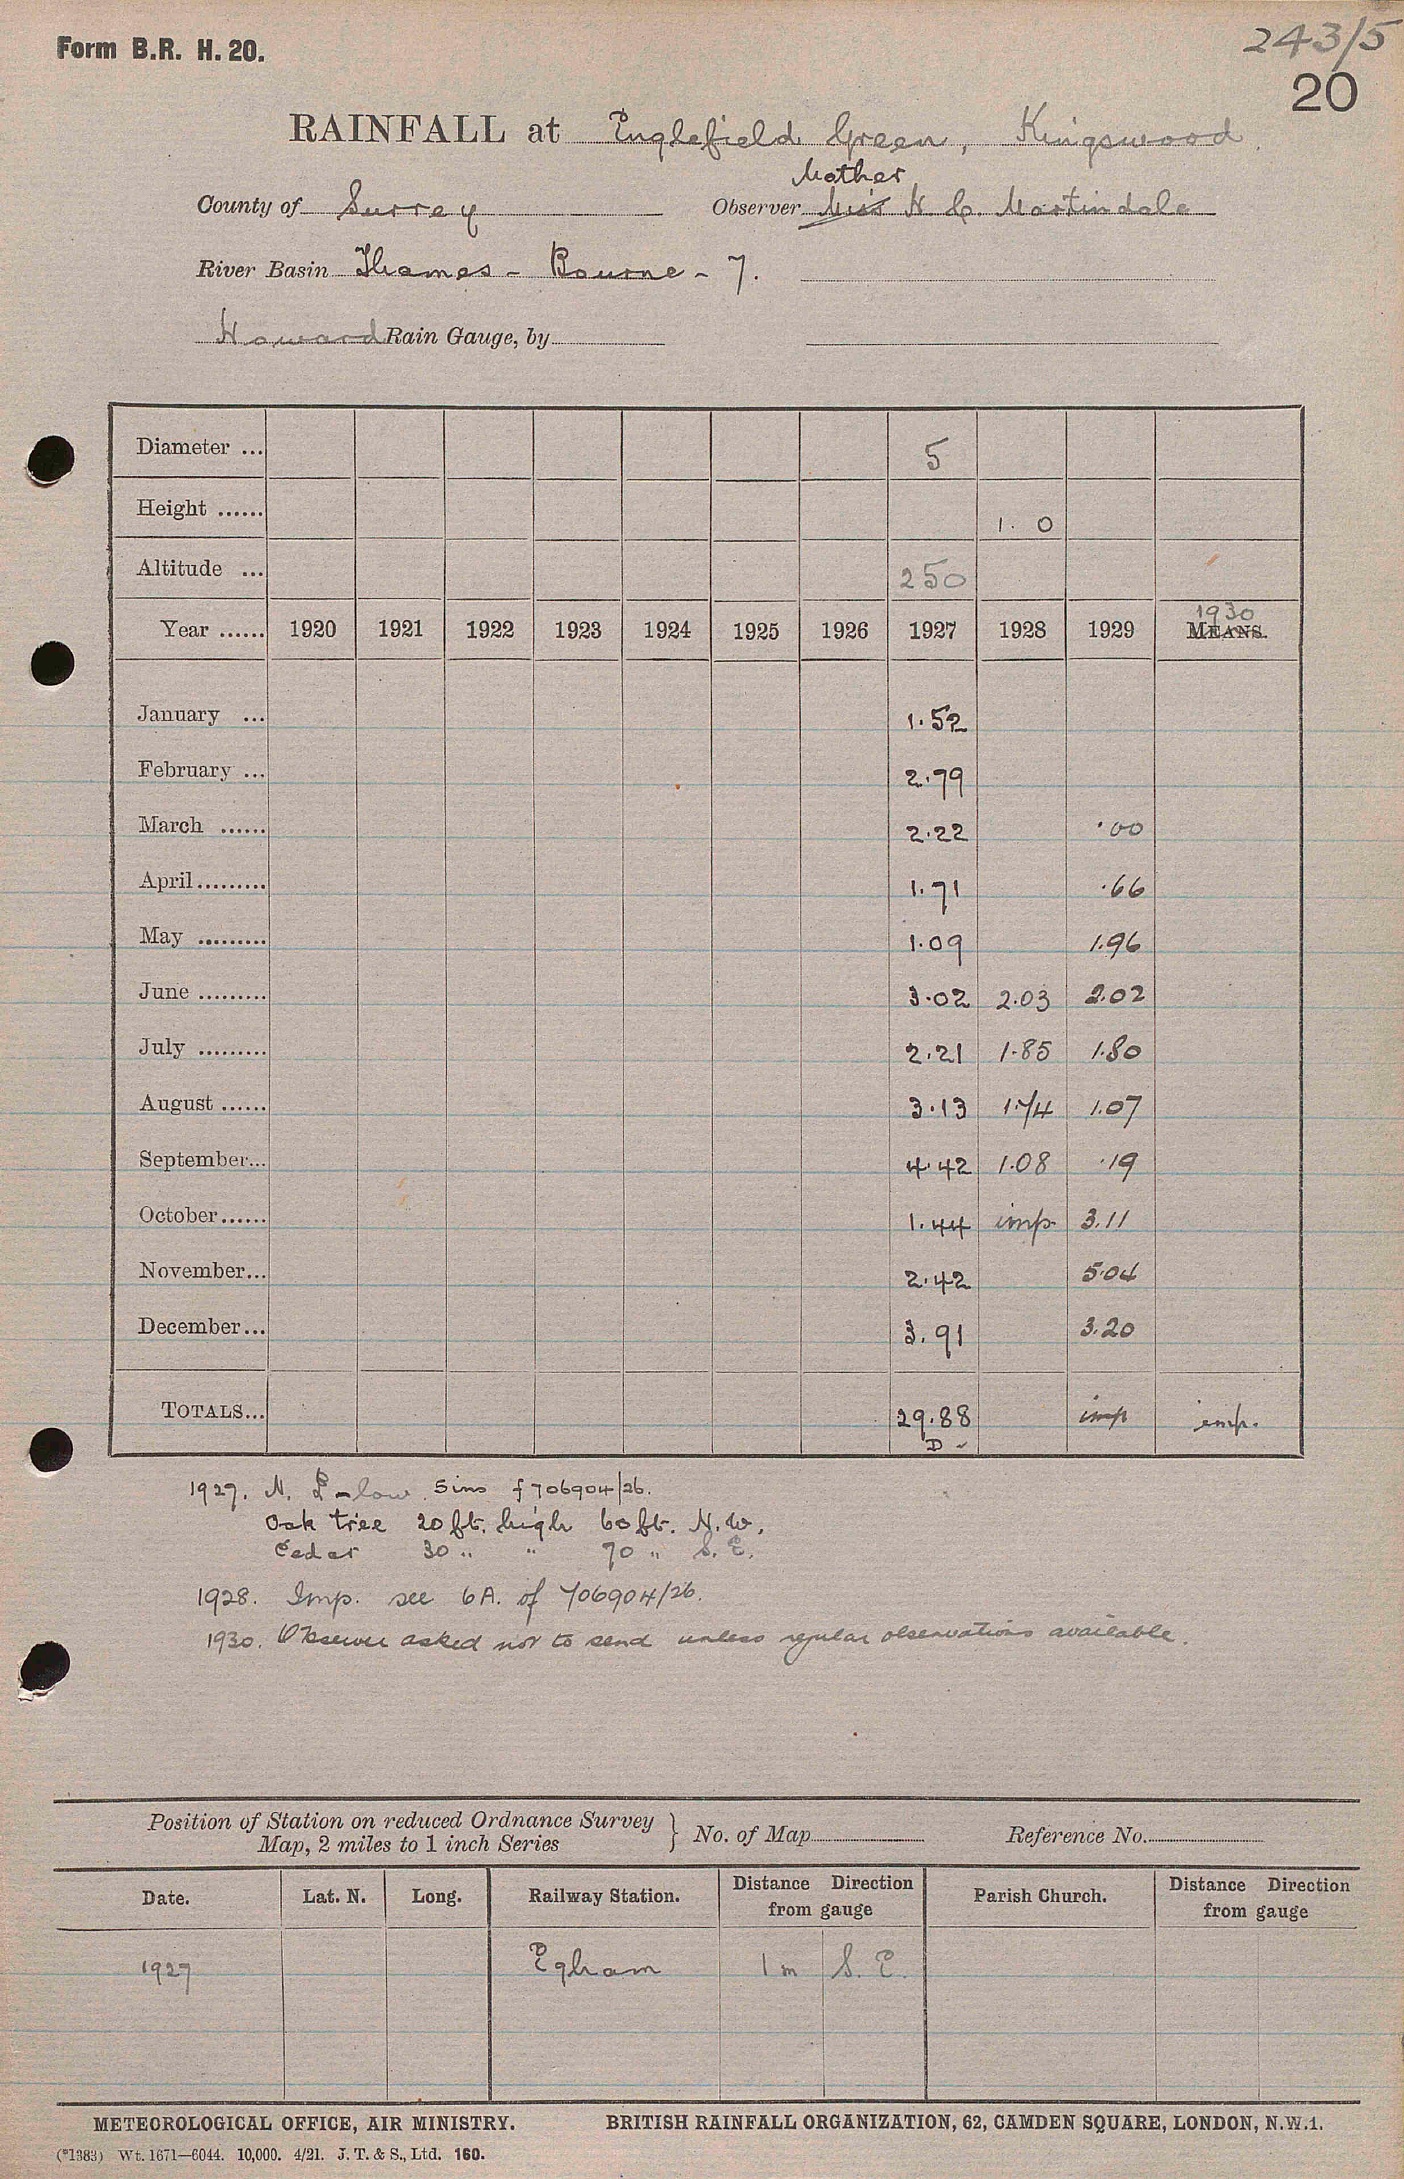 Form B.R. H. 20.
243/5
20
RAINFALL at Englefield Green, Kingswood.
Mother
County of Surrey Observer Miss H. C. Martindale
River Basin Thames - Bourne - 7.
Howard Rain Gauge, by
Diameter ... 5
Height ...... 1. 0
Altitude ... 250
1930
Year ...... 1920 1921 1922 1923 1924 1925 1926 1927 1928 1929 MEANS.
January ... 1.52
February ... 2.79
March ...... 2.22 .00
April......... 1.71 .66
May ......... 1.09 1.96
June ......... 3.02 2.03 2.02
July ......... 2.21 1.85 1.80
August ...... 3.13 1.74 1.07
September... 4.42 1.08 .19
October...... 1.44 imp. 3.11
November... 2.42 5.04
December... 3.91 3.20
TOTALS... 29.88 imp imp.
D
1927. N. 5ins f 706904/26.
Oak tree 20 ft. high 60 ft. N.W.
Cedar 30 " " 70 " S.E.
1928. Imp. see 6A. of 706904/26.
1930. Observer asked not to send unless regular observations available.
Position of Station on reduced Ordnance Survey
Map, 2 miles to 1 inch Series } No. of Map Reference No.
Date. Lat. N. Long. Railway Station. Distance Direction from gauge Parish Church. Distance Direction from gauge
1927 Egham 1 m S.E.
METEOROLOGICAL OFFICE, AIR MINISTRY. BRITISH RAINFALL ORGANIZATION, 62, CAMDEN SQUARE, LONDON, N.W.1.
(*1383) Wt. 1671—6044. 10,000. 4/21. J. T. & S., Ltd. 160.